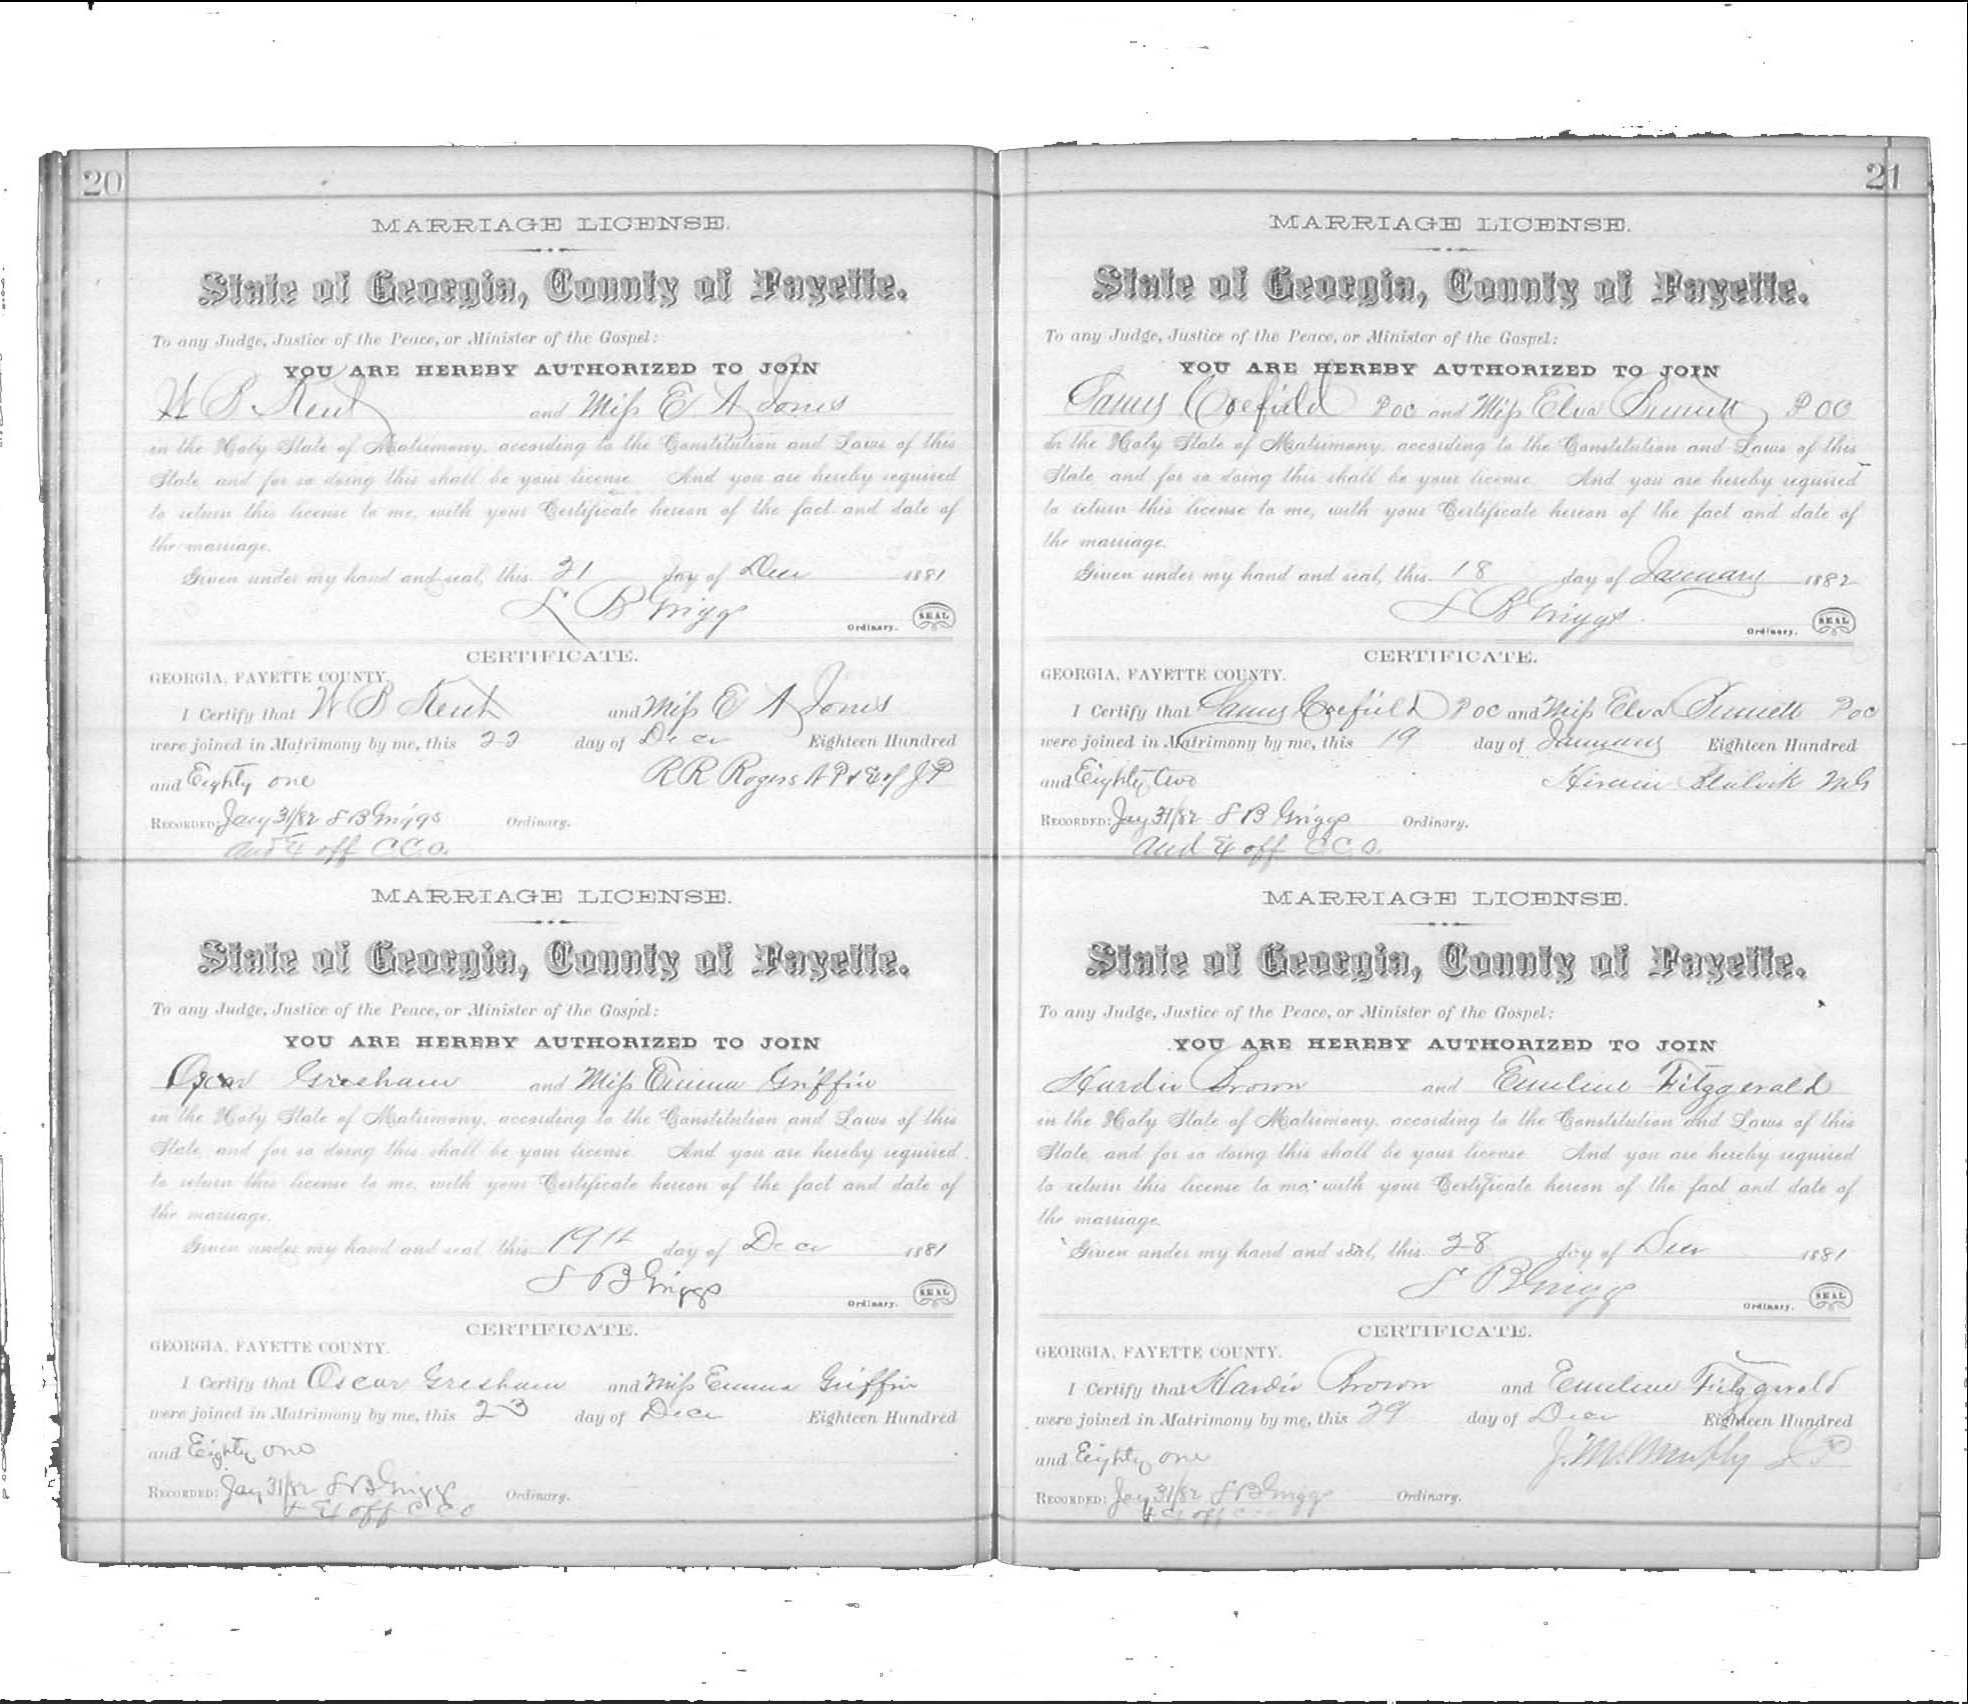 20
MARRIAGE LICENSE.
State of Georgia, County of Fayette.
To any Judge, Justice of the Peace, or Minister of the Gospel:
YOU ARE HEREBY AUTHORIZED TO JOIN
W B Kent and Miss E A Jones
in the Holy State of Matrimony, according to the Constitution and Laws of this
State, and for so doing this shall be your license. And you are hereby required
to return this license to me, with your Certificate hereon of the fact and date of
the marriage.
Given under my hand and seal, this 21 day of Decr 1881
L B Griggs
Ordinary. SEAL
CERTIFICATE.
GEORGIA, FAYETTE COUNTY.
I Certify that W B Kent and Miss E A Jones
were joined in Matrimony by me, this 22 day of Decr Eighteen Hundred
and Eighty one R R Rogers J P
RECORDED: Jany 31/82 L B Griggs Ordinary.
and off C.C.O.
MARRIAGE LICENSE.
State of Georgia, County of Fayette.
To any Judge, Justice of the Peace, or Minister of the Gospel:
YOU ARE HEREBY AUTHORIZED TO JOIN
Oscar Gresham and Miss Emma Griffin
in the Holy State of Matrimony, according to the Constitution and Laws of this
State, and for so doing this shall be your license. And you are hereby required
to return this license to me, with your Certificate hereon of the fact and date of
the marriage.
Given under my hand and seal, this 19th day of Decr 1881
L B Griggs
Ordinary. SEAL
CERTIFICATE.
GEORGIA, FAYETTE COUNTY.
I Certify that Oscar Gresham and Miss Emma Griffin
were joined in Matrimony by me, this 23 day of Decr Eighteen Hundred
and Eighty one
RECORDED: Jany 31/82 L B Griggs Ordinary.
off C C O
21
MARRIAGE LICENSE.
State of Georgia, County of Fayette.
To any Judge, Justice of the Peace, or Minister of the Gospel:
YOU ARE HEREBY AUTHORIZED TO JOIN
James Coefield P O C and Miss Elva Bennett P O C
in the Holy State of Matrimony, according to the Constitution and Laws of this
State, and for so doing this shall be your license. And you are hereby required
to return this license to me, with your Certificate hereon of the fact and date of
the marriage.
Given under my hand and seal, this 18 day of January 1882
L B Griggs
Ordinary. SEAL
CERTIFICATE.
GEORGIA, FAYETTE COUNTY.
I Certify that James Coefield P O C and Miss Elva Bennett P O C
were joined in Matrimony by me, this 19 day of January Eighteen Hundred
and Eighty two Hiram M G
RECORDED: Jany 31/82 L B Griggs Ordinary.
and off C.C.O.
MARRIAGE LICENSE.
State of Georgia, County of Fayette.
To any Judge, Justice of the Peace, or Minister of the Gospel:
YOU ARE HEREBY AUTHORIZED TO JOIN
Hardie Brown and Emeline Fitzgerald
in the Holy State of Matrimony, according to the Constitution and Laws of this
State, and for so doing this shall be your license. And you are hereby required
to return this license to me, with your Certificate hereon of the fact and date of
the marriage.
Given under my hand and seal, this 28 day of Decr 1881
L B Griggs
Ordinary. SEAL
CERTIFICATE.
GEORGIA, FAYETTE COUNTY.
I Certify that Hardie Brown and Emeline Fitzgerald
were joined in Matrimony by me, this 29 day of Decr Eighteen Hundred
and Eighty one J. M. Murphy J P
RECORDED: Jany 31/82 L B Griggs Ordinary.
off